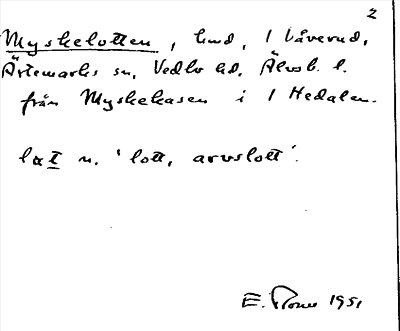 2
Myskelotten, hmd, 1 Låverud,
Ärtemarks sn, Vedbo hd, Älvsb. l.
från Myskekasen i 1 Hedalen.
n. 'lott, arvslott'.
E. 1951